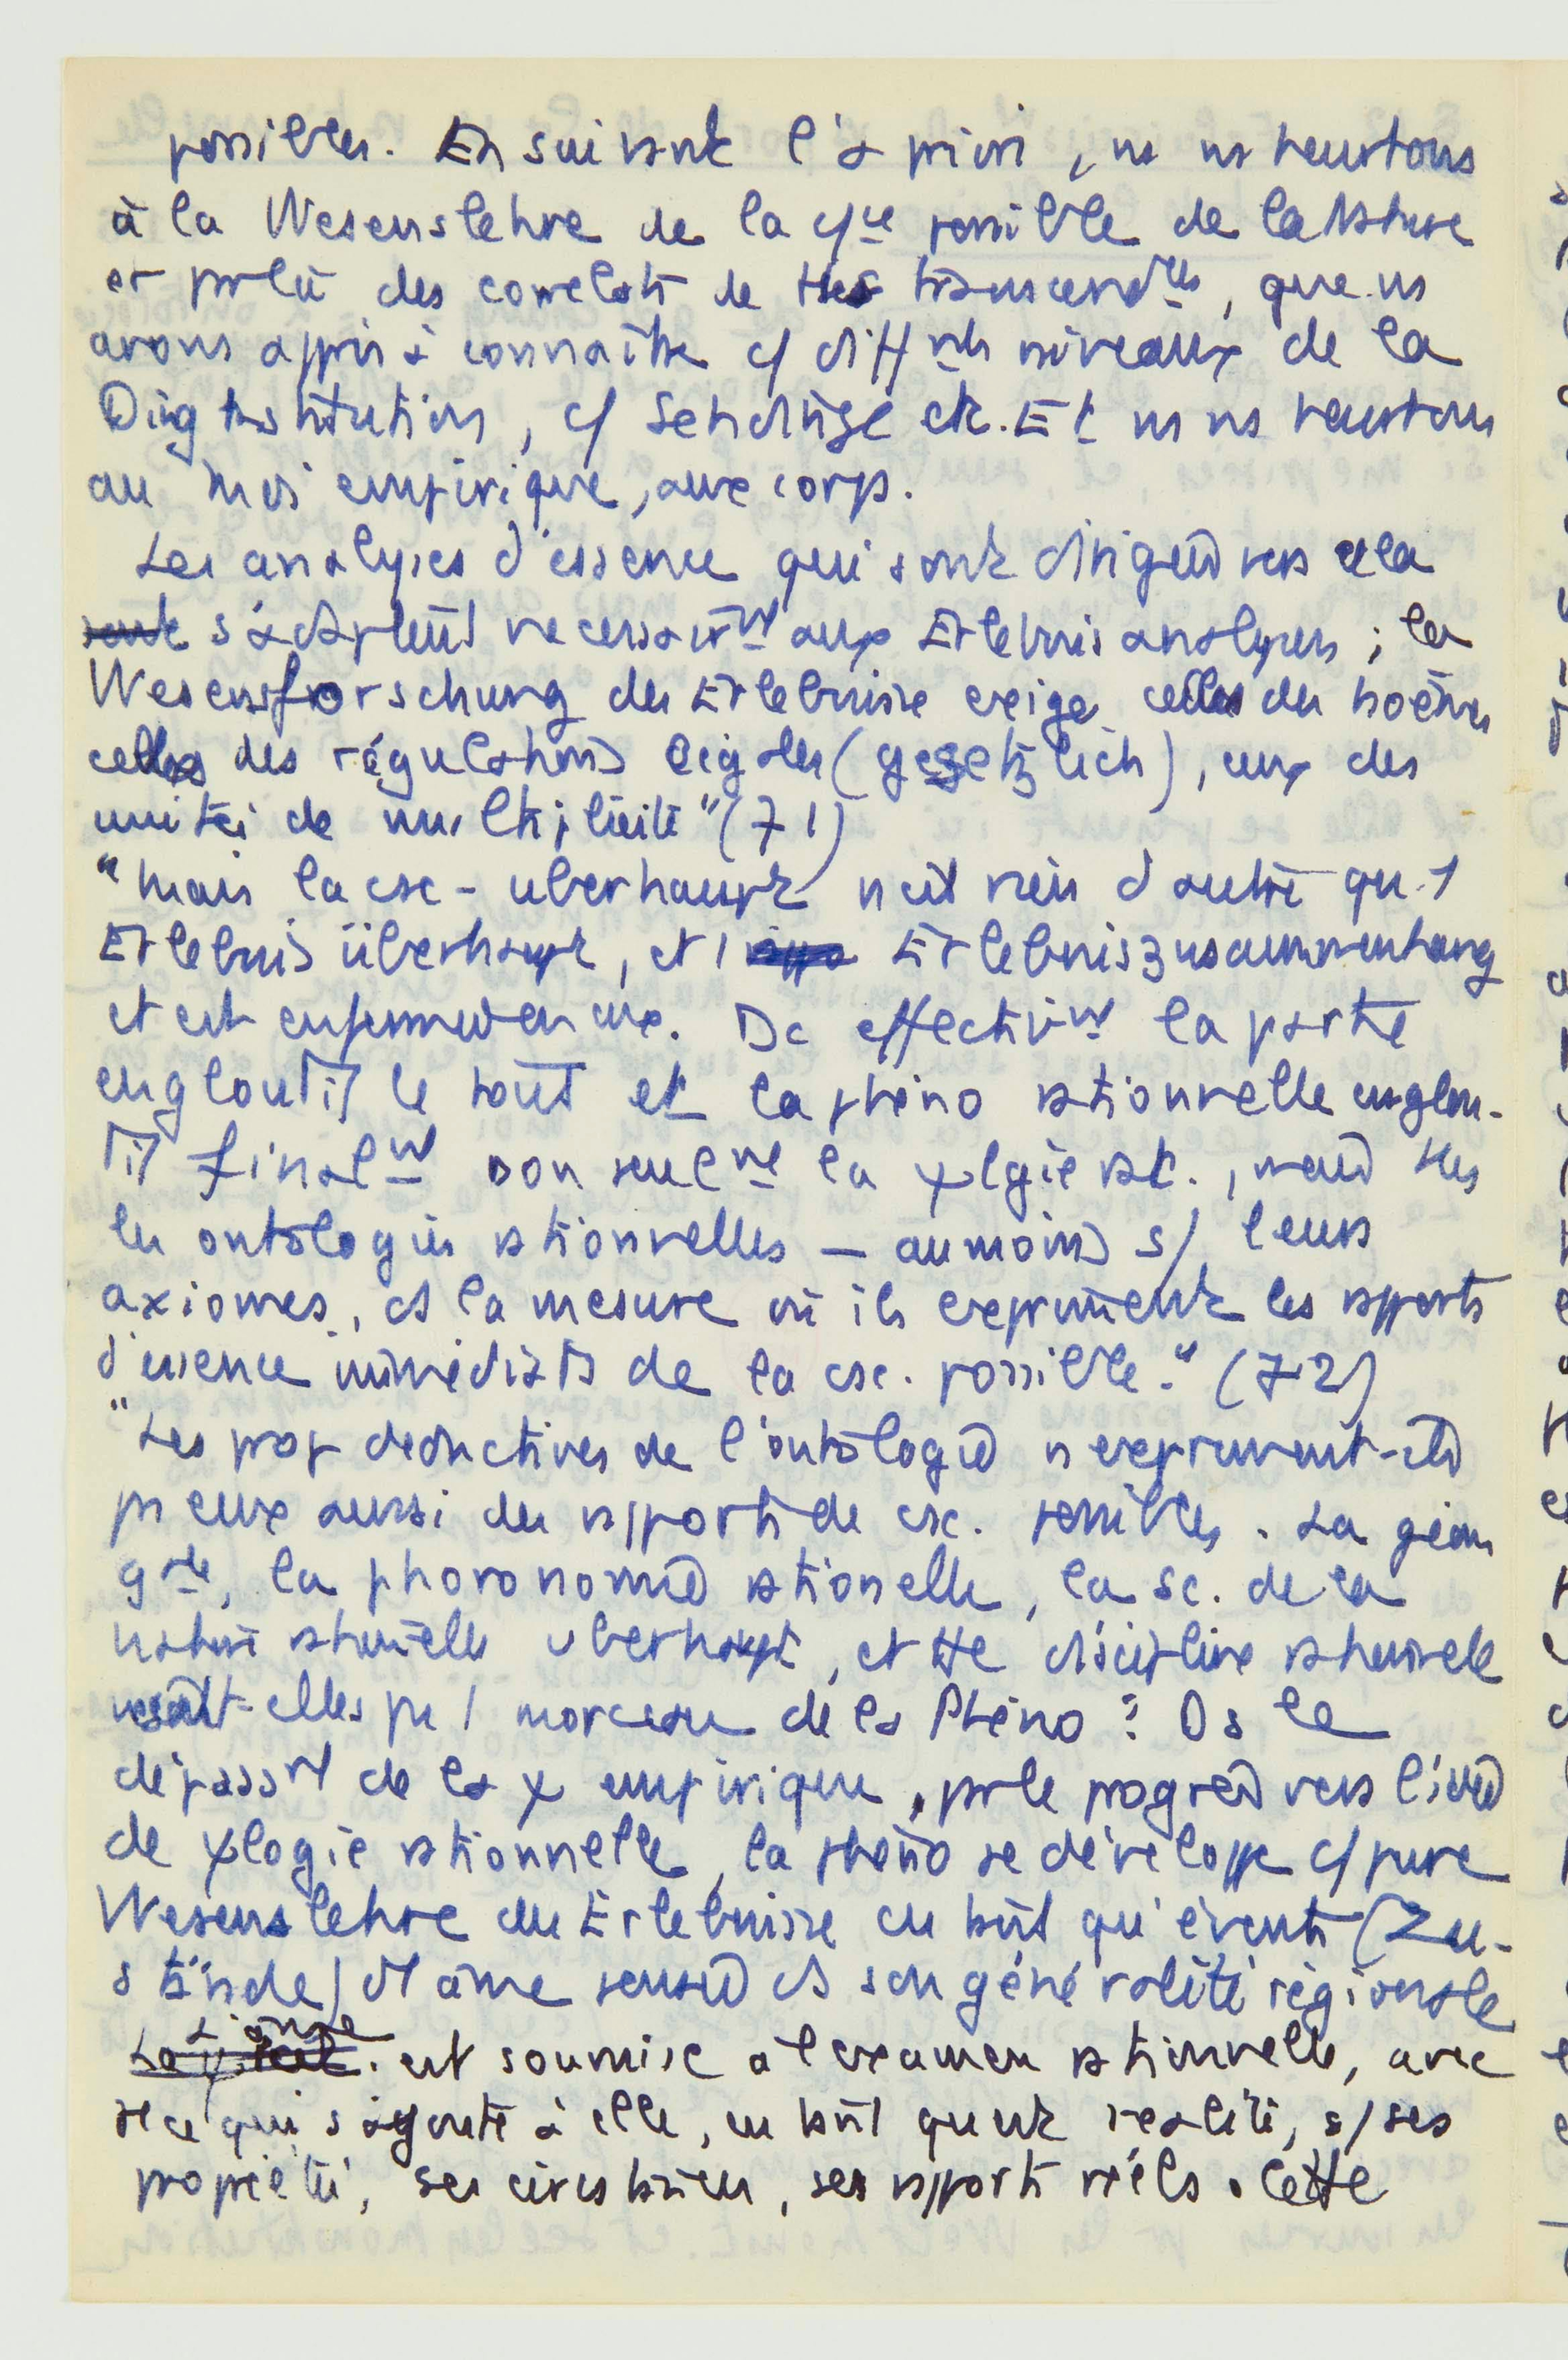 possibles. En suivant l'a priori, ns ns heurtons
à la Wesenslehre de la cs/ce possible de la Nature
et par là des correlats de ttes transcendces, que ns
avons appris à connaître c/ différts niveaux de la
Dingkonstitution, c/ Sehdinge etc. Et ns ns heurtons
au moi empirique, aux corps.
Les analyses d'essence qui sont dirigées vers cela
sont s'adaptent necessairemt aux Erlebnis analyses ; la
Wesensforschung des Erlebnisse exige celles des noèmes
celles des régulations légales (gesetzlich), ceux des
unités de multiplicité" (71)
"Mais la csc - uberhaupt n'est rien d'autre qu'1
Erlebnis überhaupt, et 1 Erlebniszusammenhang
et est enfermée en eux. Dc effectivmt la partie
engloutit le tout et la phéno rationnelle englou-
tit finalmt non seulmt la ψlgie rat., mais ttes
les ontologies rationnelles — au moins s/ leurs
axiomes, ds la mesure où ils expriment les rapports
d'essence immédiats de la csc. possible." (72)
"Les prop deductives de l'ontologie n'expriment-ils
pas eux aussi des rapports de csc. possibles. La géom
gale, la phoronomie rationelle, la sc. de la
nature rationelle uberhaupt, et tte discipline rationelle
ne sont-elles pas 1 morceau de la Phéno ? Ds le
dépassmt de la ψ empirique, par le progrès vers l'idée
de ψlogie rationnelle, la phéno se développe c/ pure
Wesenslehre des Erlebnisse en tant qu'évents (Zu-
stände) d'1 âme pensée ds son généralité régionale
L'âme est soumise à l'examen rationnelle, avec
tt ce qui s'ajoute à elle, en tant que réalité, s/ ses
propriétés, ses circstances, ses rapports réels. Cette